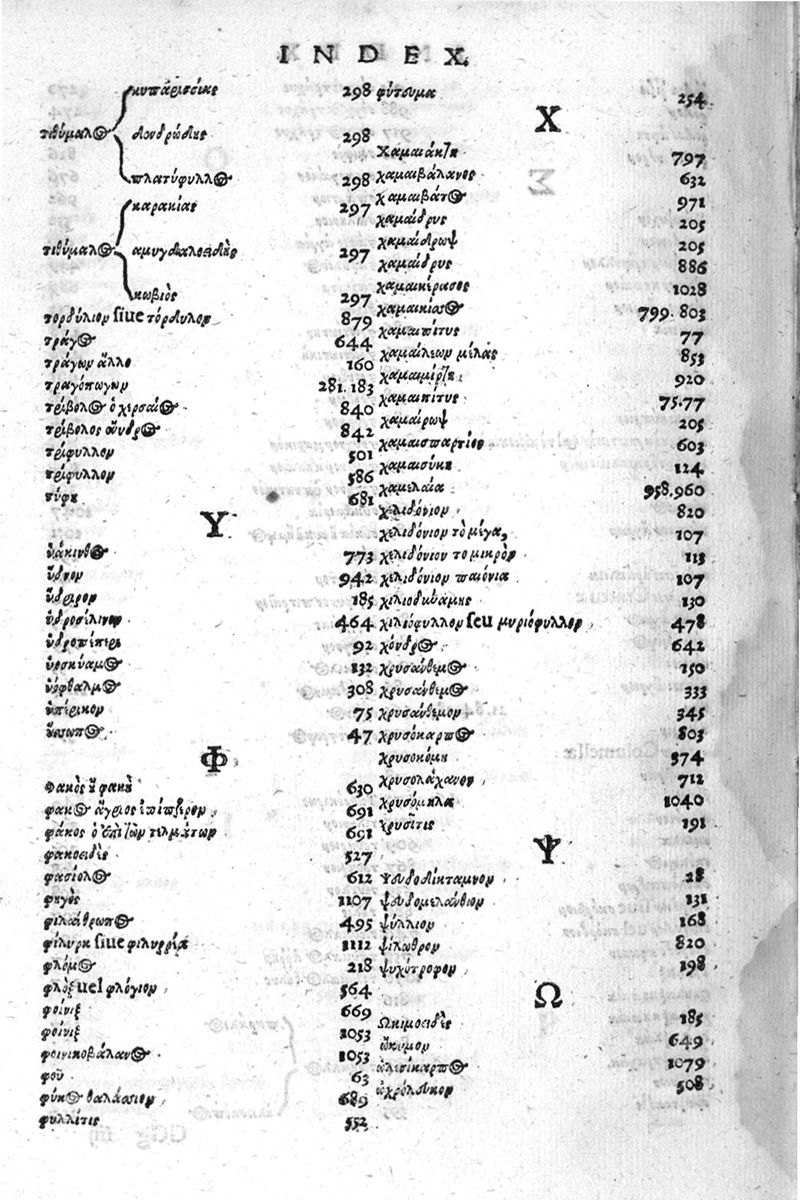 INDEX.
κυπάρισσίας 298
τιθύμαλος δενδρώδης 298
πλατύφυλλος 298
καρακίας 297
τιθύμαλος ἀμυγδαλοειδὴς 297
κωβιὸς 297
τορδύλιον siue τόρδυλον 879
τράγος 644
τράγων ἄλλο 160
τραγόπωγων 281.183
τρίβολος ὁ χερσαῖος 840
τρίβολος ἔνυδρος 842
τρίφυλλον 501
τρίφυλλον 586
τύφη 681
Υ
ὑάκινθος 773
ὕδνον 942
185
ὑδροσέλινον 464
ὑδροπέπερι 92
ὑοσκύαμος 132
308
ὑπέρικον 75
ὕσσωπος 47
Φ
Φακὸς ἢ φακῆ 630
φακος ἄγριος 691
φάκος ὁ ἐπὶ τῶν τελμάτων 691
φακοειδὲς 527
φασίολος 612
φηγός 1107
φιλάνθρωπος 495
φίλυρη siue φιλυρρία 1112
φλόμος 218
φλὸξ uel φλόγιον 564
φοίνιξ 669
φοίνιξ 1053
φοινικοβάλανος 1053
φοῦ 63
φύκος θαλάσσιον 689
φυλλίτις 552
φύτευμα 254
Χ
Χαμαιάκτη 797
χαμαιβάλανος 632
χαμαιβάτος 971
χαμαίδρυς 205
χαμαίδρωψ 205
χαμαίδρυς 886
χαμαικέρασος 1028
χαμαικίσσος 799.803
χαμαιπίτυς 77
χαμαιλεων μέλας 853
920
χαμαιπίτυς 75.77
χαμαίρωψ 205
χαμαισπαρτίον 603
χαμαισύκη 124
χαμελαία 958.960
χελιδόνιον 820
χελιδόνιον τὸ μέγα, 107
χελιδόνιον το μικρὸν 113
χελιδόνιον παιόνια 107
χιλιοδυνάμις 130
χιλιόφυλλον seu μυριόφυλλον, 478
χόνδρος 642
χρυσάνθεμος 150
χρυσάνθεμος 333
χρυσάνθεμον 345
χρυσόκαρπος 803
χρυσοκόμη 574
χρυσολάχανον 712
χρυσόμηλα 1040
χρυσῖτις 191
Ψ
Ψευδοδίκταμνον 28
ψευδομελάνθιον 131
ψύλλιον 168
ψίλωθρον 820
ψυχότροφον 198
Ω
Ωκιμοειδὲς 185
ὤκυμον 649
1079
ὠχρόλευκον 508